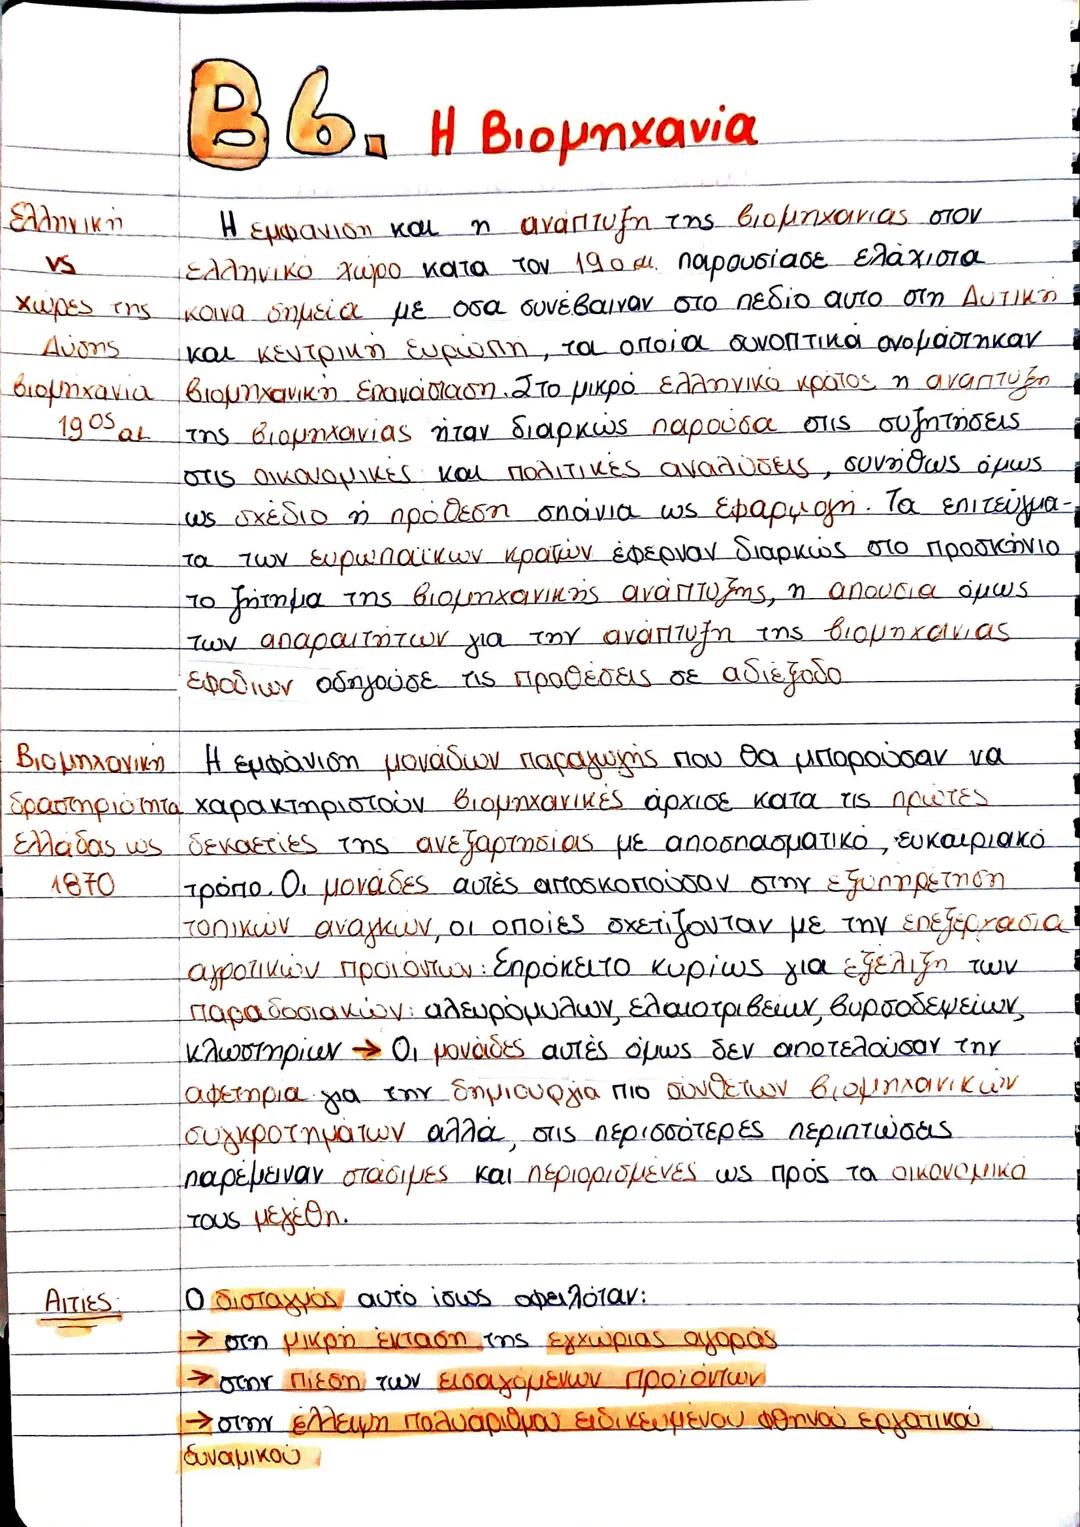 Β6. Η Βιομηχανία
Ελληνική
vs
χώρες της
Δύσης
βιομηχανία
19ος αι
Η εμφανιση και η ανάπτυξη της βιομηχανιας στον
ελληνικό χώρο κατα τον 19ο αι. παρουσίασε ελάχιστα
κοινα σημεία με οσα συνέβαιναν στο πεδίο αυτο στη Δυτική
και κεντρική Ευρώπη, τα οποία συνοπτικά ονομάστηκαν
βιομηχανική επανάσταση. Στο μικρό ελληνικό κράτος η αναπτυξη
της βιομηχανίας ήταν διαρκώς παρούσα στις συζητήσεις
στις οικονομικές και πολιτικές αναλύσεις, συνήθως όμως
ως σχέδιο ή πρόθεση σπάνια ως εφαρμογή. Τα επιτεύγμα-
τα των ευρωπαϊκων κρατών έφερναν διαρκώς στο προσκήνιο
το ζήτημα της βιομηχανικής ανάπτυξης, η απουσια όμως
των απαραιτήτων για την ανάπτυξη της βιομηχανιας
εφοδιων οδηγούσε τις προθέσεις σε αδιέξοδο
Βιομηχανική
δραστηριότητα
Ελλάδας ως
1870
Η εμφάνιση μονάδων παραγωγής που θα μπορούσαν να
χαρακτηριστούν βιομηχανικές άρχισε κατα τις πρώτες
δεκαετίες της ανεξαρτησίας με αποσπασματικό, ευκαιριακό
τρόπο. Οι μονάδες αυτές αποσκοπούσαν στην εξυπηρέτηση
τοπικών αναγκών, οι οποίες σχετίζονταν με την επεξεργασια
αγροτικών προϊόντων: Επρόκειτο κυρίως για εξέλιξη των
παραδοσιακών: αλευρόμυλων, ελαιοτριβείων, βυρσοδεψείων,
κλωστηρίων → Οι μονάδες αυτές όμως δεν αποτελούσαν την
αφετηρια για την δημιουργία πιο σύνθετων βιομηχανικών
συγκροτημάτων αλλά, στις περισσότερες περιπτώσεις
παρέμειναν στάσιμες και περιορισμένες ως πρός τα οικονομικά
τους μεγέθη.
Αιτιες:
Ο δισταγμός αυτό ίσως οφειλόταν:
→ στη μικρή έκταση της εγχώριας αγοράς
→ στην πίεση των εισαγόμενων προϊόντων
→ στην έλλειψη πολυάριθμου ειδικευμένου φθηνού εργατικού
δυναμικού